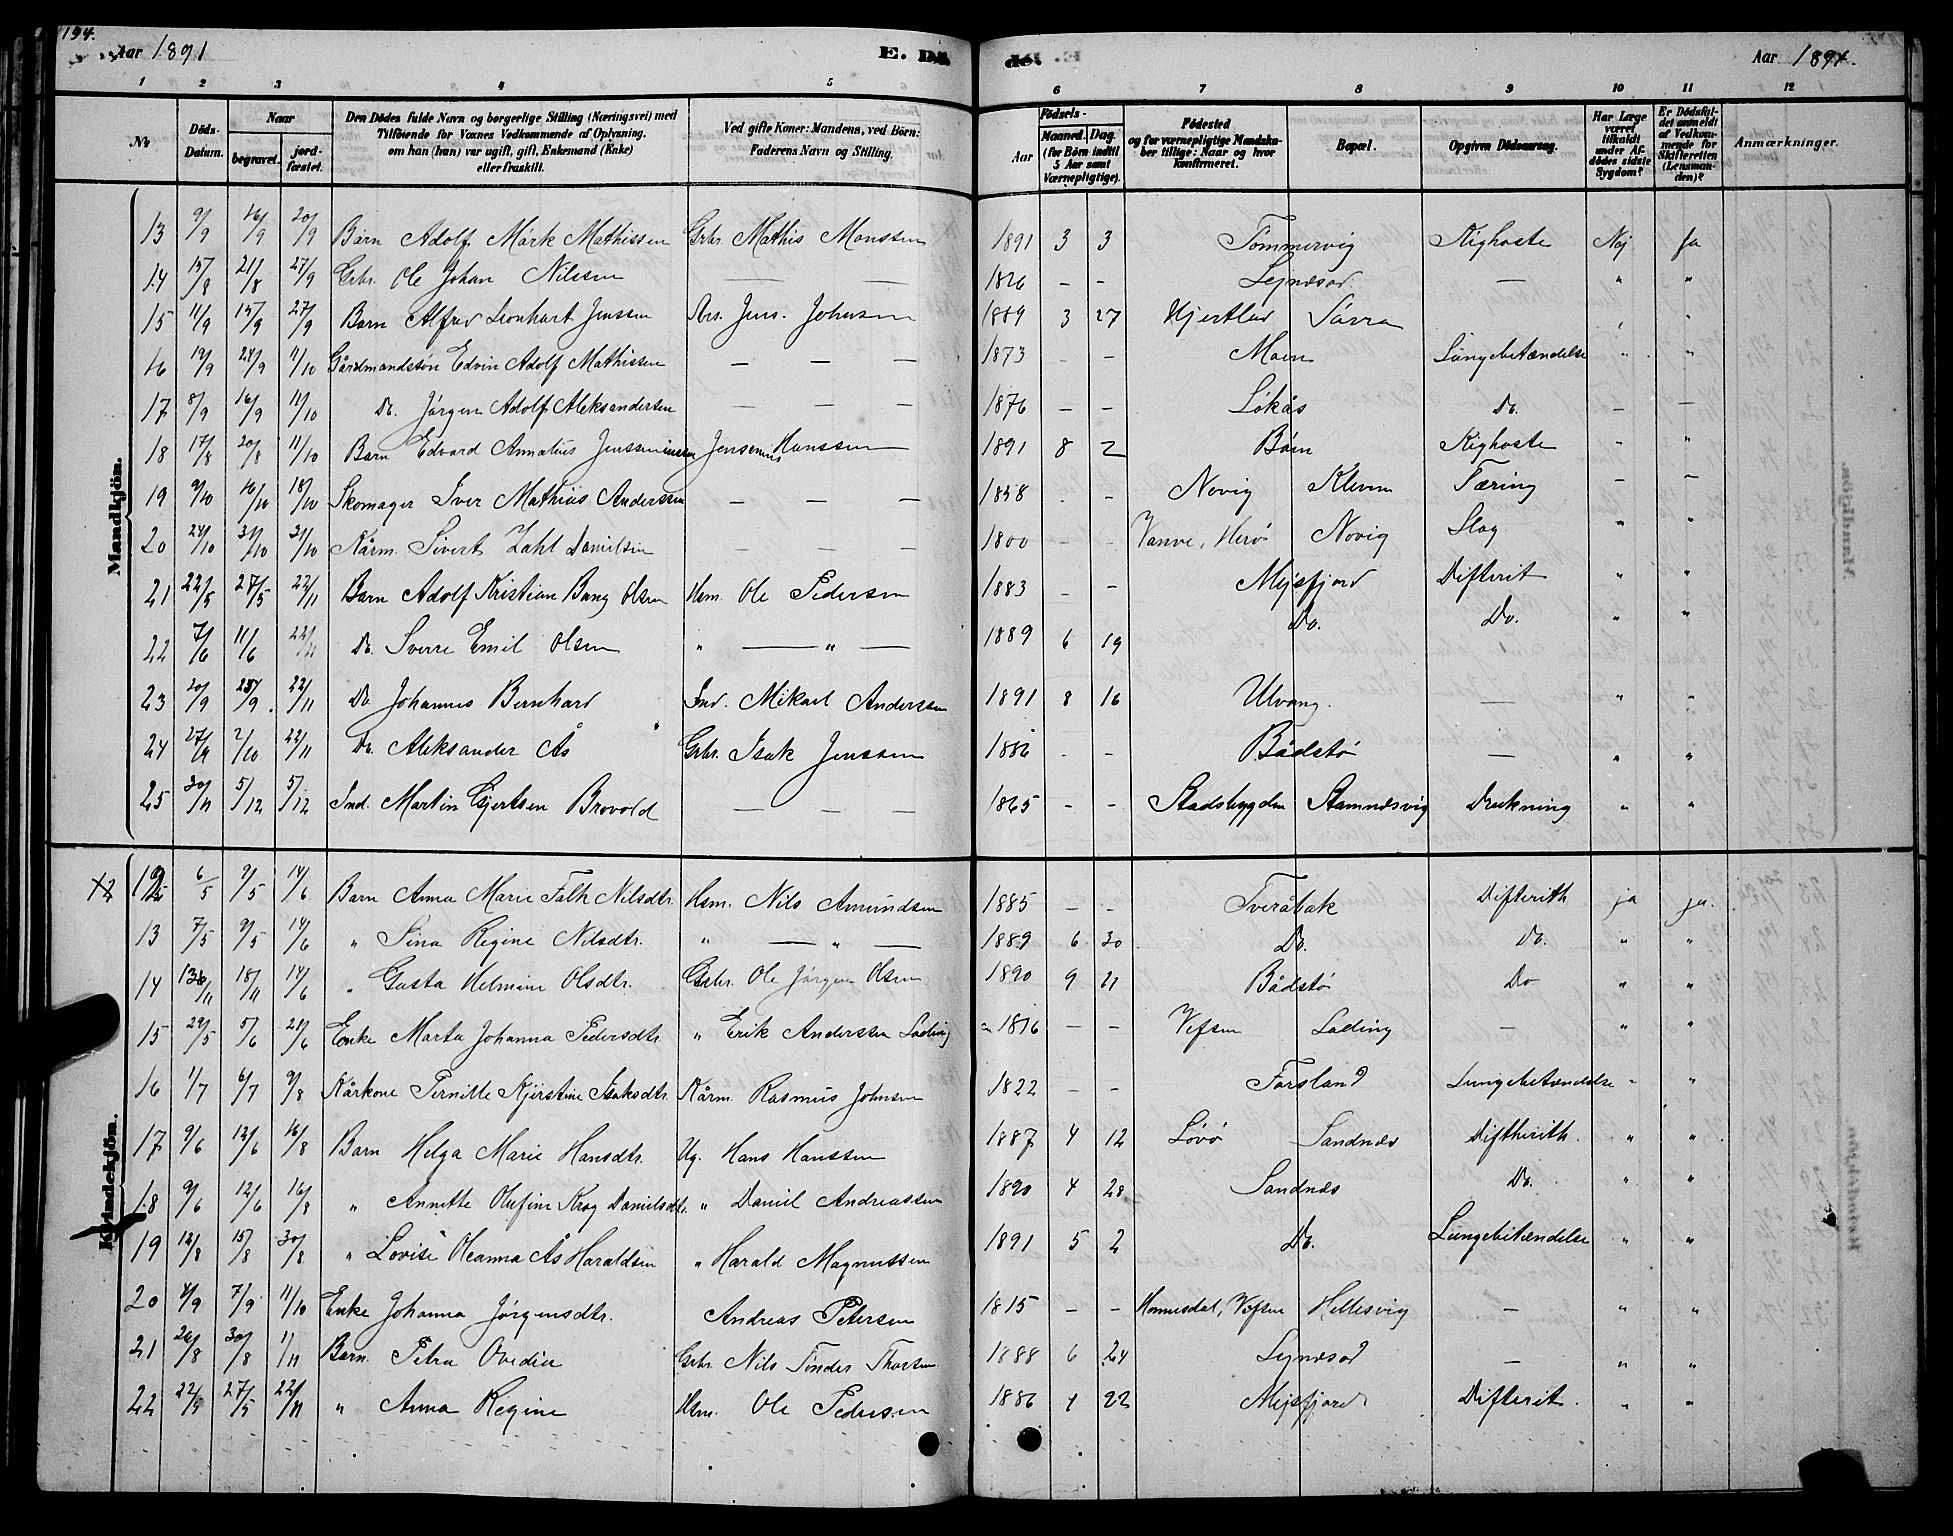 194.
Aar 1891
E. Dö
de.
Aar 1891.
1 2 3 4 5 6 7 8 9 10 11 12
No.
Döds-Datum.
Naar
begravet.
jord-fæstet.
Den Dödes fulde Navn og borgerlige Stilling (Næringsvei) med
Tilföiende for Voxnes Vedkommende af Oplysning,
om han (hun) var ugift, gift, Enkemand (Enke)
eller fraskilt.
Ved gifte Koner: Mandens, ved Börn:
Faderens Navn og Stilling.
Födsels-
Aar
Maaned. Dag.
(for Börn indtil
5 Aar samt
Værnepligtige).
Födested
og for værnepligtige Mandska-
ber tillige: Naar og hvor
konfirmeret.
Bopæl.
Opgiven Dödsaarsag.
Har Læge
været
tilkaldt
under Af-
dödes sidste
Sygdom?
Er Dödsfal-
det anmeldt
af Vedkom-
mende for
Skifteretten
(Lensman-
den)?
Anmærkninger.
Mandkjön.
13 9/9 16/9 20/9 Barn Adolf Mørk Mathissen Grbr. Mathis Monssen 1891 3 3 Tømmervig Kighoste Nej Ja
14 15/8 21/8 27/9 Grbr. Ole Johan Nilssen — — 1826 - - Lejndsad. — " "
15 11/9 15/9 27/9 Barn Alfred Leonhart Jenssen Arb. Jens. Johnsen 1889 3 27 Hjertland Sørra " "
16 19/9 24/9 11/10 Gårdmandssøn Edvin Adolf Mathissen — — — 1873 - Moen Lungebetændelse " "
17 8/9 16/9 11/10 Do. Jørgen Adolf Aleksandersen — — — 1876 - - Løkås Do. — —
18 17/8 20/8 11/10 Barn Edvard Annatius Jenssen Jensenius Hanssen 1891 8 2 Bøen Kighoste - "
19 9/10 16/10 18/10 Skomager Iver Mathias Anderssen — — — 1858 - - Novig Kleven Tæring — —
20 24/10 31/10 31/10 Kårm. Sivert Zahl Danielsen — — — 1800 - - Vanve, Herø Novig Slag " "
21 22/5 27/5 22/11 Barn Adolf Kristian Bang Olsen Hsm. Ole Pedersen 1883 - - Mejsfjord Difterit " "
22 7/6 11/6 22/11 Do. Sverre Emil Olsen " — " — 1889 6 19 Do. Do. " "
23 20/9 25/9 22/11 Do. Johannes Bernhard Ind. Mikael Anderssen 1891 8 16 Ulvang. — " "
24 27/9 2/10 22/11 Do. Aleksander Ås Grbr. Isak Jenssen 1886 - - Bådstø — " "
25 30/11 5/12 5/12 Ind. Martin Ejertsen Brovold — — — 1865 - - Stadsbygden Stamnæsvig Drukning " "
Kvindekjön.
12 6/5 9/5 14/6 Barn Anna Marie Falk Nilsdtr. Hsm. Nils Amundsen 1885 - - Tveråbak Difterith ja ja.
13 7/5 9/5 14/6 " Sina Regine Nilsdtr. " — " — 1889 6 30 Do. Do. " "
14 13/11 18/11 14/6 " Gusta Helmine Olsdtr. Grbr. Ole Jørgen Olsen 1890 9 21 Bådstø Do " "
15 29/5 5/6 21/6 Enke Marta Johanna Pedersdtr. " Erik Anderssen Lading 1816 - - Vefsen Lading — " "
16 1/7 6/7 9/8 Kårkone Pernille Kjerstine Isaksdtr. Kårm. Rasmus Johnsen 1822 - - Forsland Lungebetændelse " "
17 9/6 12/6 16/8 Barn Helga Marie Hansdtr. Ug. Hans Hanssen 1887 4 12 Løvø Sandnes Difthirith. " "
18 9/6 12/6 16/8 " Annette Olufine Krog Danielsdtr. " Daniel Andreassen 1890 4 28 Sandnes Do. " "
19 12/8 15/8 30/8 " Lovise Oleanna Ås Haraldsen " Harald Magnussen 1891 5 2 Do. Lungebetændelse " "
20 4/9 7/9 11/10 Enke Johanna Jørgensdtr. Andreas Petersen 1815 - - Hommesdal, Vefsen Hellesvig — " "
21 26/8 30/8 1/11 Barn Petra Ovedia Grbr Nils Tinder Thorsen 1888 6 24 Lejndsad — " "
22 22/5 27/5 22/11 " Anna Regine Hsm. Ole Pedersen 1886 4 22 Mejsfjord Difterit. " "